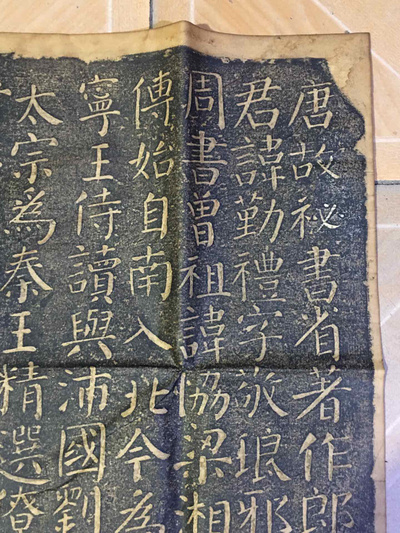 唐故祕書省著作郎
君諱勤禮字敬琅邪
周書曾祖諱協梁湘
傅始自南入北今為
寧王侍讀與沛國劉
太宗爲秦王精選僚